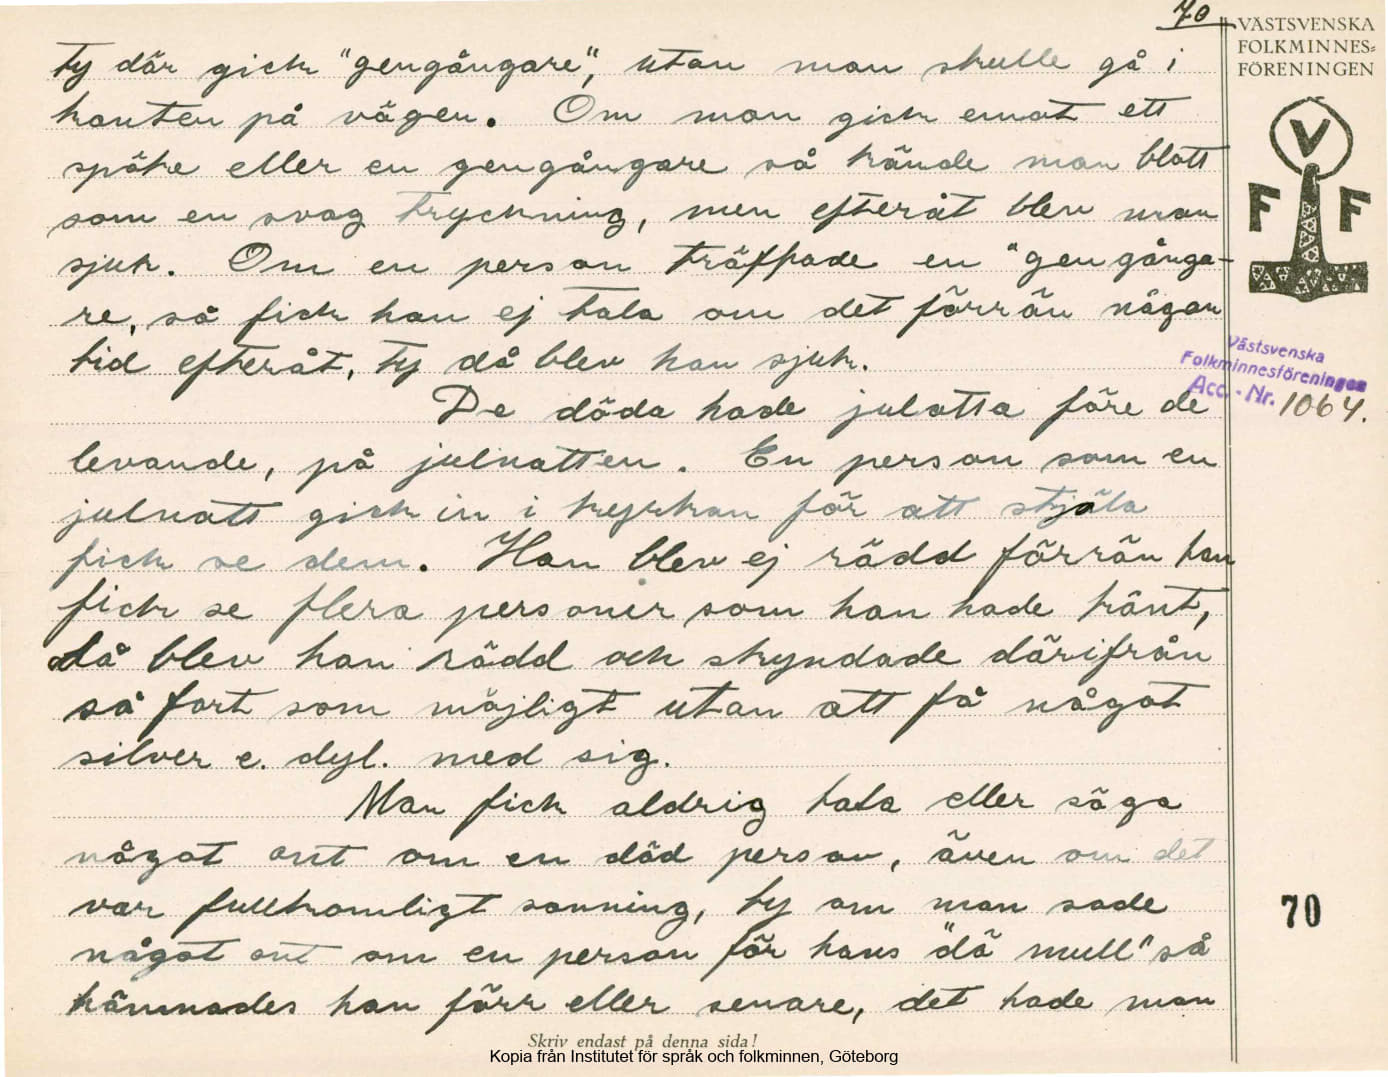 70
VÄSTSVENSKA
FOLKMINNES-
FÖRENINGEN
V
F F
ty där gick "gengångare", utan man skulle gå i
kanten på vägen. Om man gick emot ett
spöke eller en gengångare så kände man blott
som en svag tryckning, men efteråt blev man
sjuk. Om en person träffade en "gengånga-
re, så fick han ej tala om det förrän någon
tid efteråt, ty då blev han sjuk.
Västsvenska
Folkminnesföreningen
Acc.-Nr. 1064.
De döda hade julotta före de
levande, på julnatten. En person som en
julnatt gick in i kyrkan för att stjäla
fick se dem. Han blev ej rädd förrän han
fick se flera personer som han hade känt,
då blev han rädd och skyndade därifrån
så fort som möjligt utan att få något
silver e. dyl. med sig.
Man fick aldrig tala eller säga
något ont om en död person, även om det
var fullkomligt sanning, ty om man sade
något ont om en person för hans "dö mull" så
hämnades han förr eller senare, det hade man
70
Skriv endast på denna sida!
Kopia från Institutet för språk och folkminnen, Göteborg